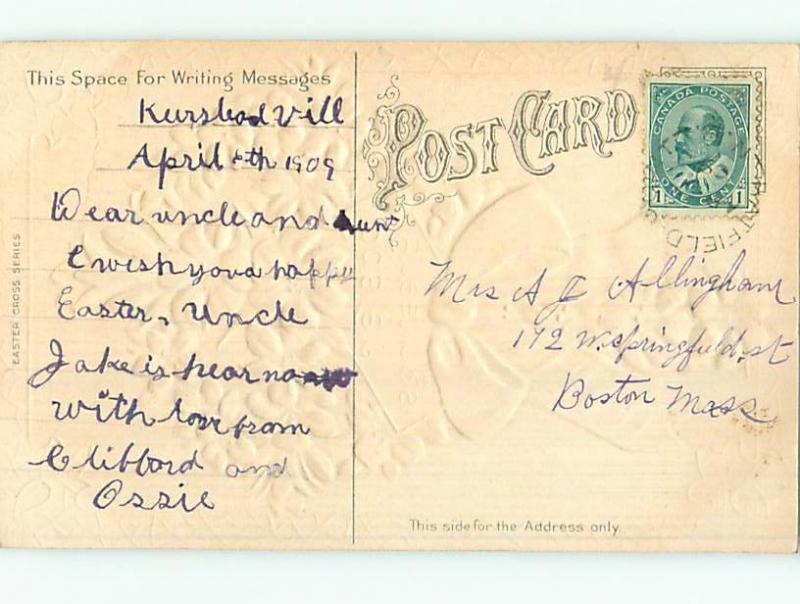 This Space For Writing Messages
Vill
April th 1909
Dear uncle and Aunt
I wish you a happy
Easter, Uncle
Jake is hear now
with love from
Clibbord and
Ossie
EASTER CROSS SERIES
POST CARD
CANADA POSTAGE
1 ONE CENT 1
TFIELD
Mrs A J Allingham
172 W. Springfield. st
Boston Mass
This side for the Address only.